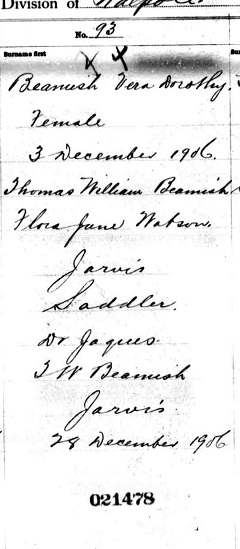 Division of
No. 93
Surname first
Beamish Vera Dorothy.
Female
3 December 1906.
Thomas William Beamish
Flora Jane Watson.
Jarvis
Saddler.
Dr Jaques
T W Beamish
Jarvis
28 December 1906
021478